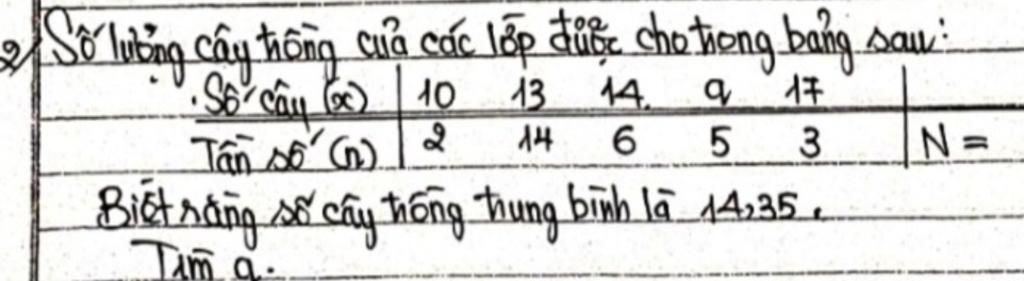 2/ Số lượng cây trồng của các lớp được cho trong bảng sau:
Số cây (x) | 10 13 14 a 17 |
Tần số (n) | 2 14 6 5 3 | N =
Biết rằng số cây trồng trung bình là 14,35.
Tìm a.